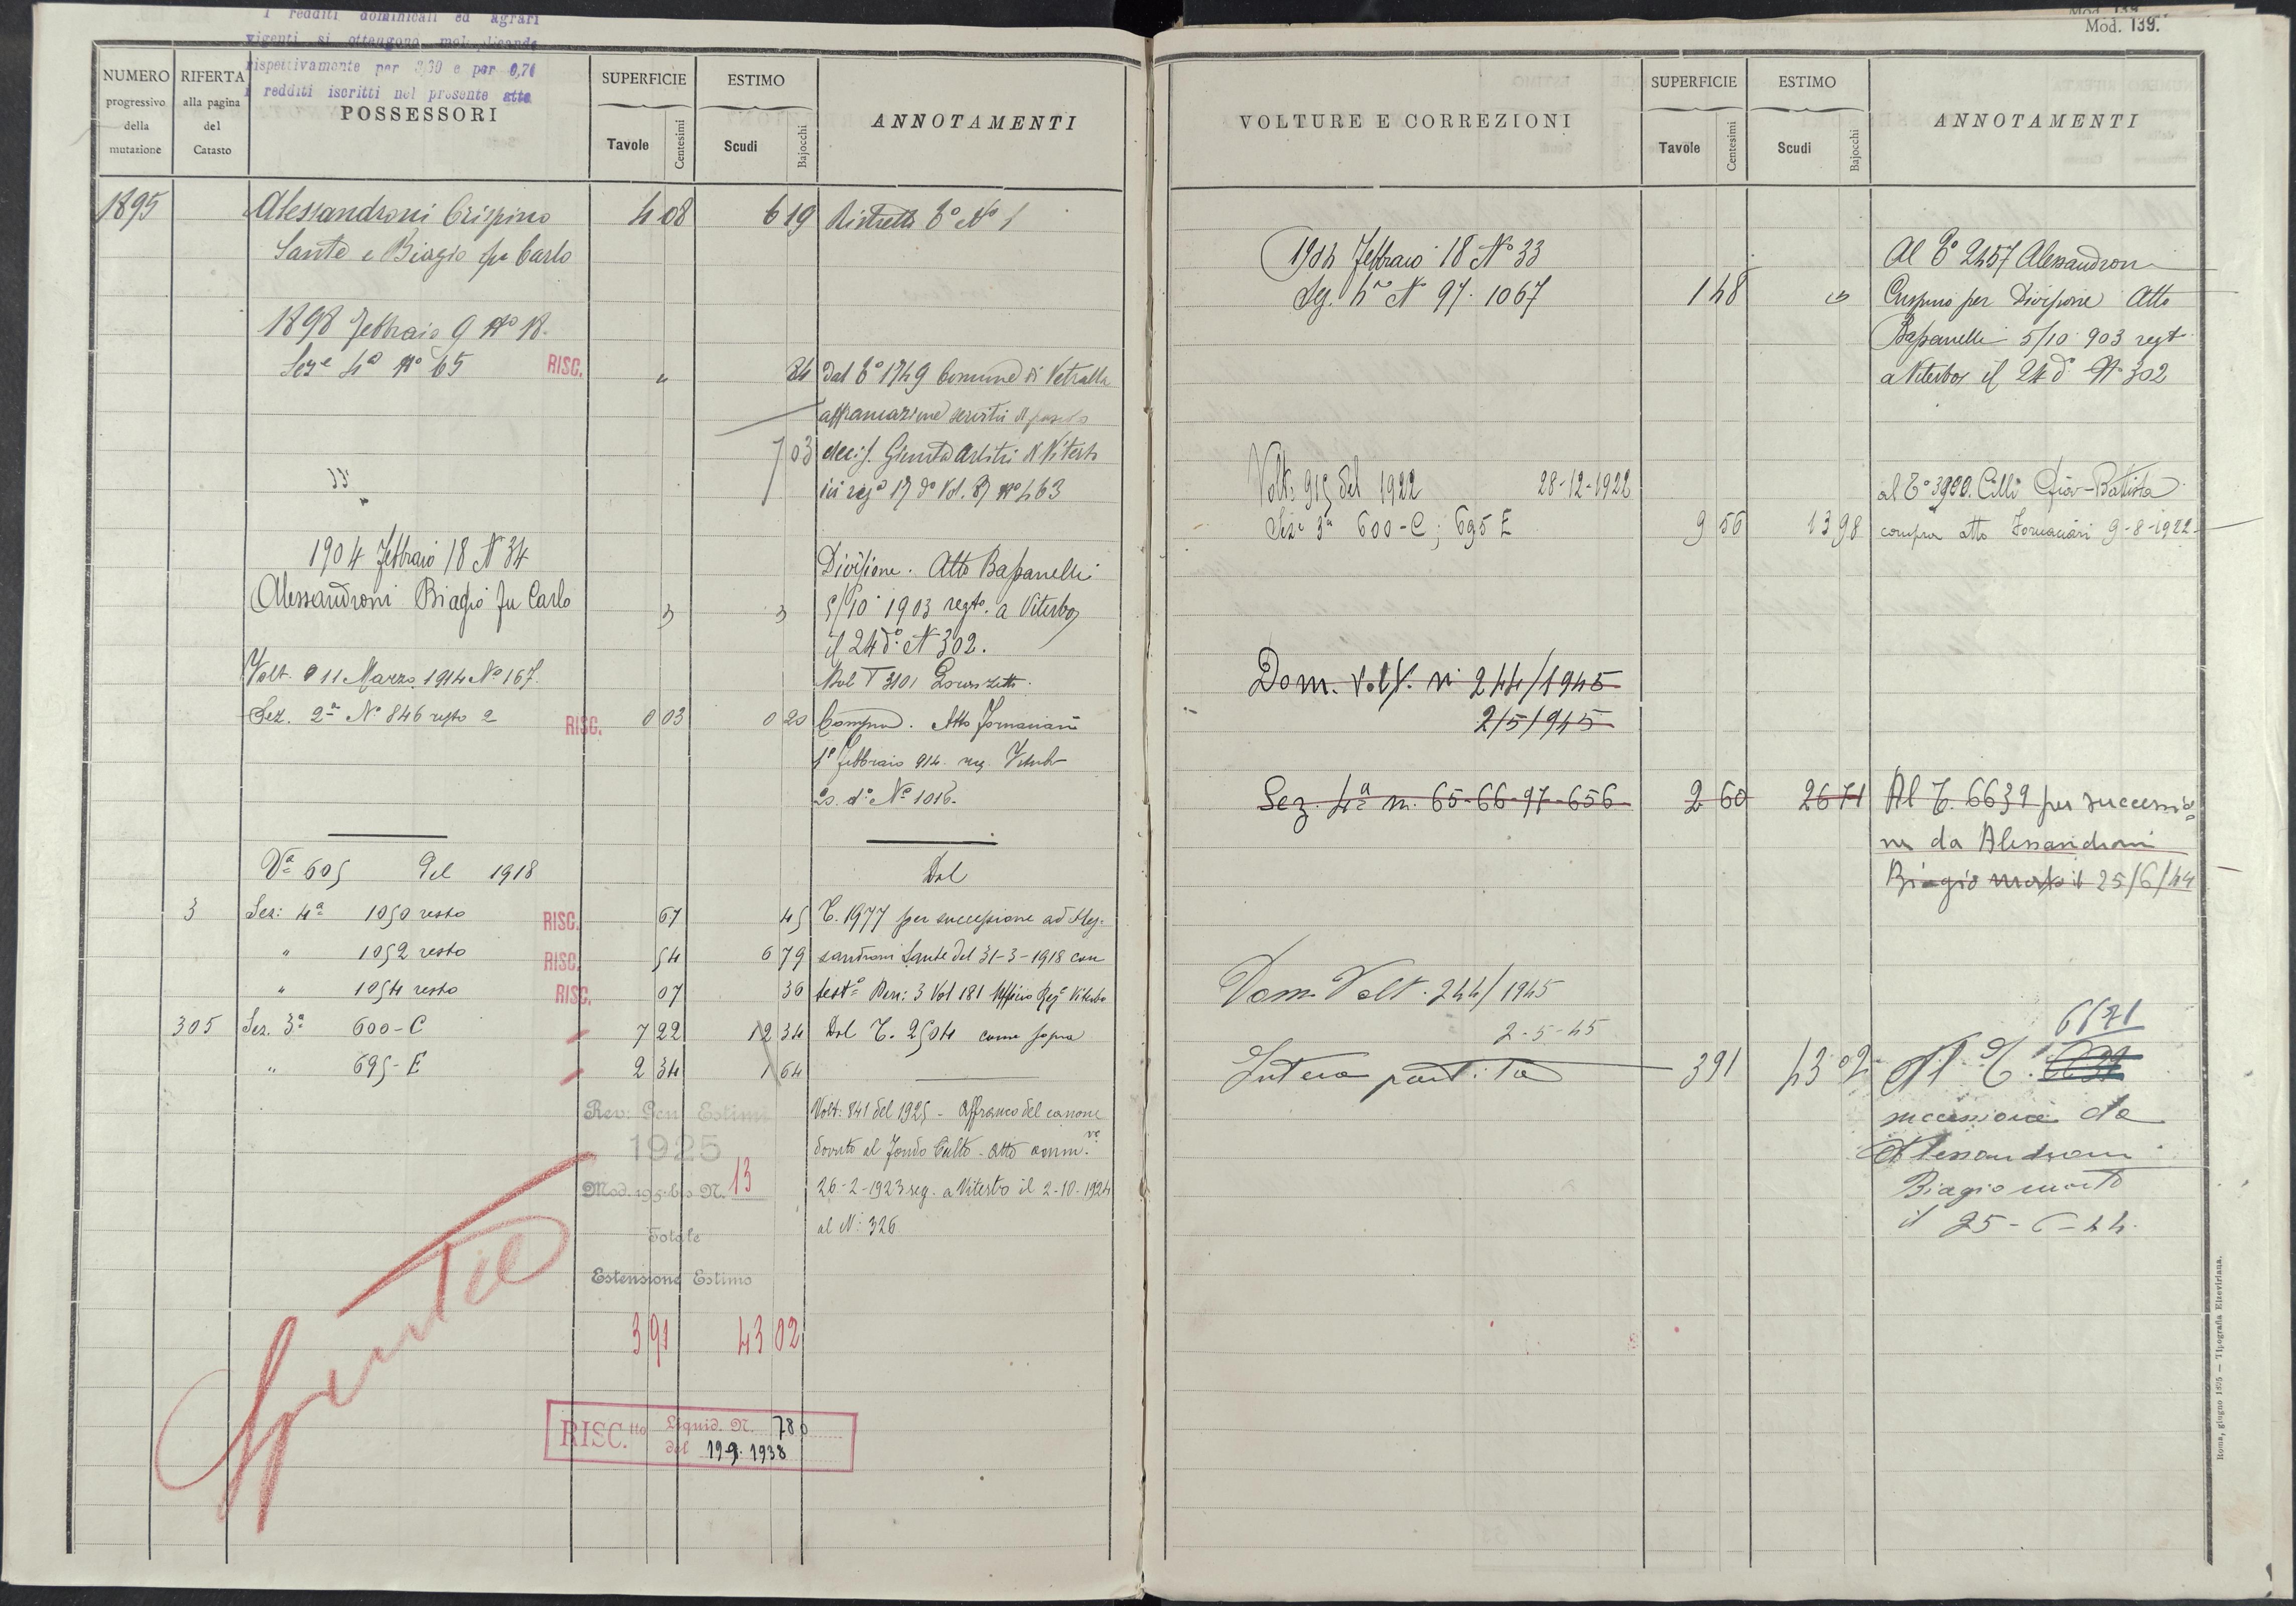 I redditi dominicali ed agrari
vigenti si ottengono moltiplicando
rispettivamente per 3,30 e per 0,70
i redditi iscritti nel presente atto
NUMERO progressivo della mutazione
RIFERTA alla pagina del Catasto
POSSESSORI
SUPERFICIE
Tavole Centesimi
ESTIMO
Scudi Bajocchi
ANNOTAMENTI
1895 Alessandroni Crispino 4 08 6 19 Ristretto T° N° 1
Sante e Biagio fu Carlo
1898 Febbraio 9 N° 18.
Seze 4a N° 65 RISC. " 84 Dal T° 1749 Comune di Vetralla
affrancazione servitù di pascolo
7 03 decis. Giunta Arbitri di Viterbo
ivi rega 17 do Vol. 87 N° 463
1904 Febbraio 18 N 34
Divisione. Atto Bassanelli
Alessandroni Biagio fu Carlo " " 5/10 1903 regto. a Viterbo
il 24 do. N 302.
Volt. 11 Marzo 1914 No 167.
Sez. 2a No 846 resto 2 RISC. 0 03 0 20 Compra. Atto Fornaciari
1° Febbraio 914. reg. Viterbo
20. do. No 1016.
Va 605 del 1918
Dal
3 Sez: 4a 1050 resto RISC. 67 45 T. 1977 per successione ad Ales-
" 1052 resto RISC. 54 6 79 sandroni Sante del 31-3-1918 con
" 1054 resto RISC. 07 36 testo Den: 3 Vol 181 Ufficio Rego Viterbo
305 Sez. 3a 600-C 7 22 12 34 Dal T. 2504 come sopra
" 695-E 2 34 1 64
Rev: Gen Estimi
1925
Mod. 195 bis N. 13
Volt: 841 del 1925 - Affranco del canone
dovuto al Fondo Culto - Atto amm.ve
26-2-1923 reg. a Viterbo il 2-10-1924
al N: 326
Totale
Estensione Estimo
3 91 43 02
Spenta
RISC.tto Liquid. N. 780
del 19.9.1938
Mod. 139.
VOLTURE E CORREZIONI
SUPERFICIE
Tavole Centesimi
ESTIMO
Scudi Bajocchi
ANNOTAMENTI
1904 Febbraio 18 No 33 Al T° 2457 Alessandroni
Sez. 4a N 97. 1067 1 48 " Crispino per Divisione Atto
Bassanelli 5/10 903 regt
a Viterbo il 24 do N 302
Volt: 915 del 1922 28-12-1922 al T° 3900. Cilli Giov-Battista
Sez: 3a 600-C; 695 E 9 56 13 98 compra atto Fornaciari 9-8-1922-
Dom. Volt. n 244/1945
2/5/945
Sez. 4a n. 65-66-97-656 2 60 26 71 Al T. 6639 per successio=
ne da Alessandroni
Biagio morto il 25/6/44
Dom. Volt. 244/1945
2-5-45
6671
Intera partita 3 91 43 02 Al T.
successione da
Alessandroni
Biagio morto
il 25-6-44.
Roma, giugno 1895 — Tipografia Elzeviriana.